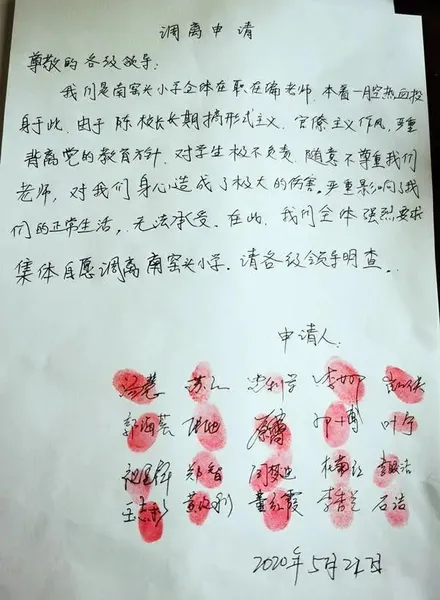 调离申请
尊敬的各级领导:
我们是南窑头小学全体在职在编老师,本着一腔热血投
身于此,由于陈校长长期搞形式主义,官僚主义作风,严重
背离党的教育方针,对学生极不负责,随意不尊重我们
老师,对我们身心造成了极大的伤害,严重影响了我
们的正常生活,无法承受。在此,我们全体强烈要求
集体自愿调离南窑头小学。请各级领导明查。
申请人:
郭海芸 叶宁
郑香 杜南红
黄红霞 李杏兰 石洁
2020年5月22日